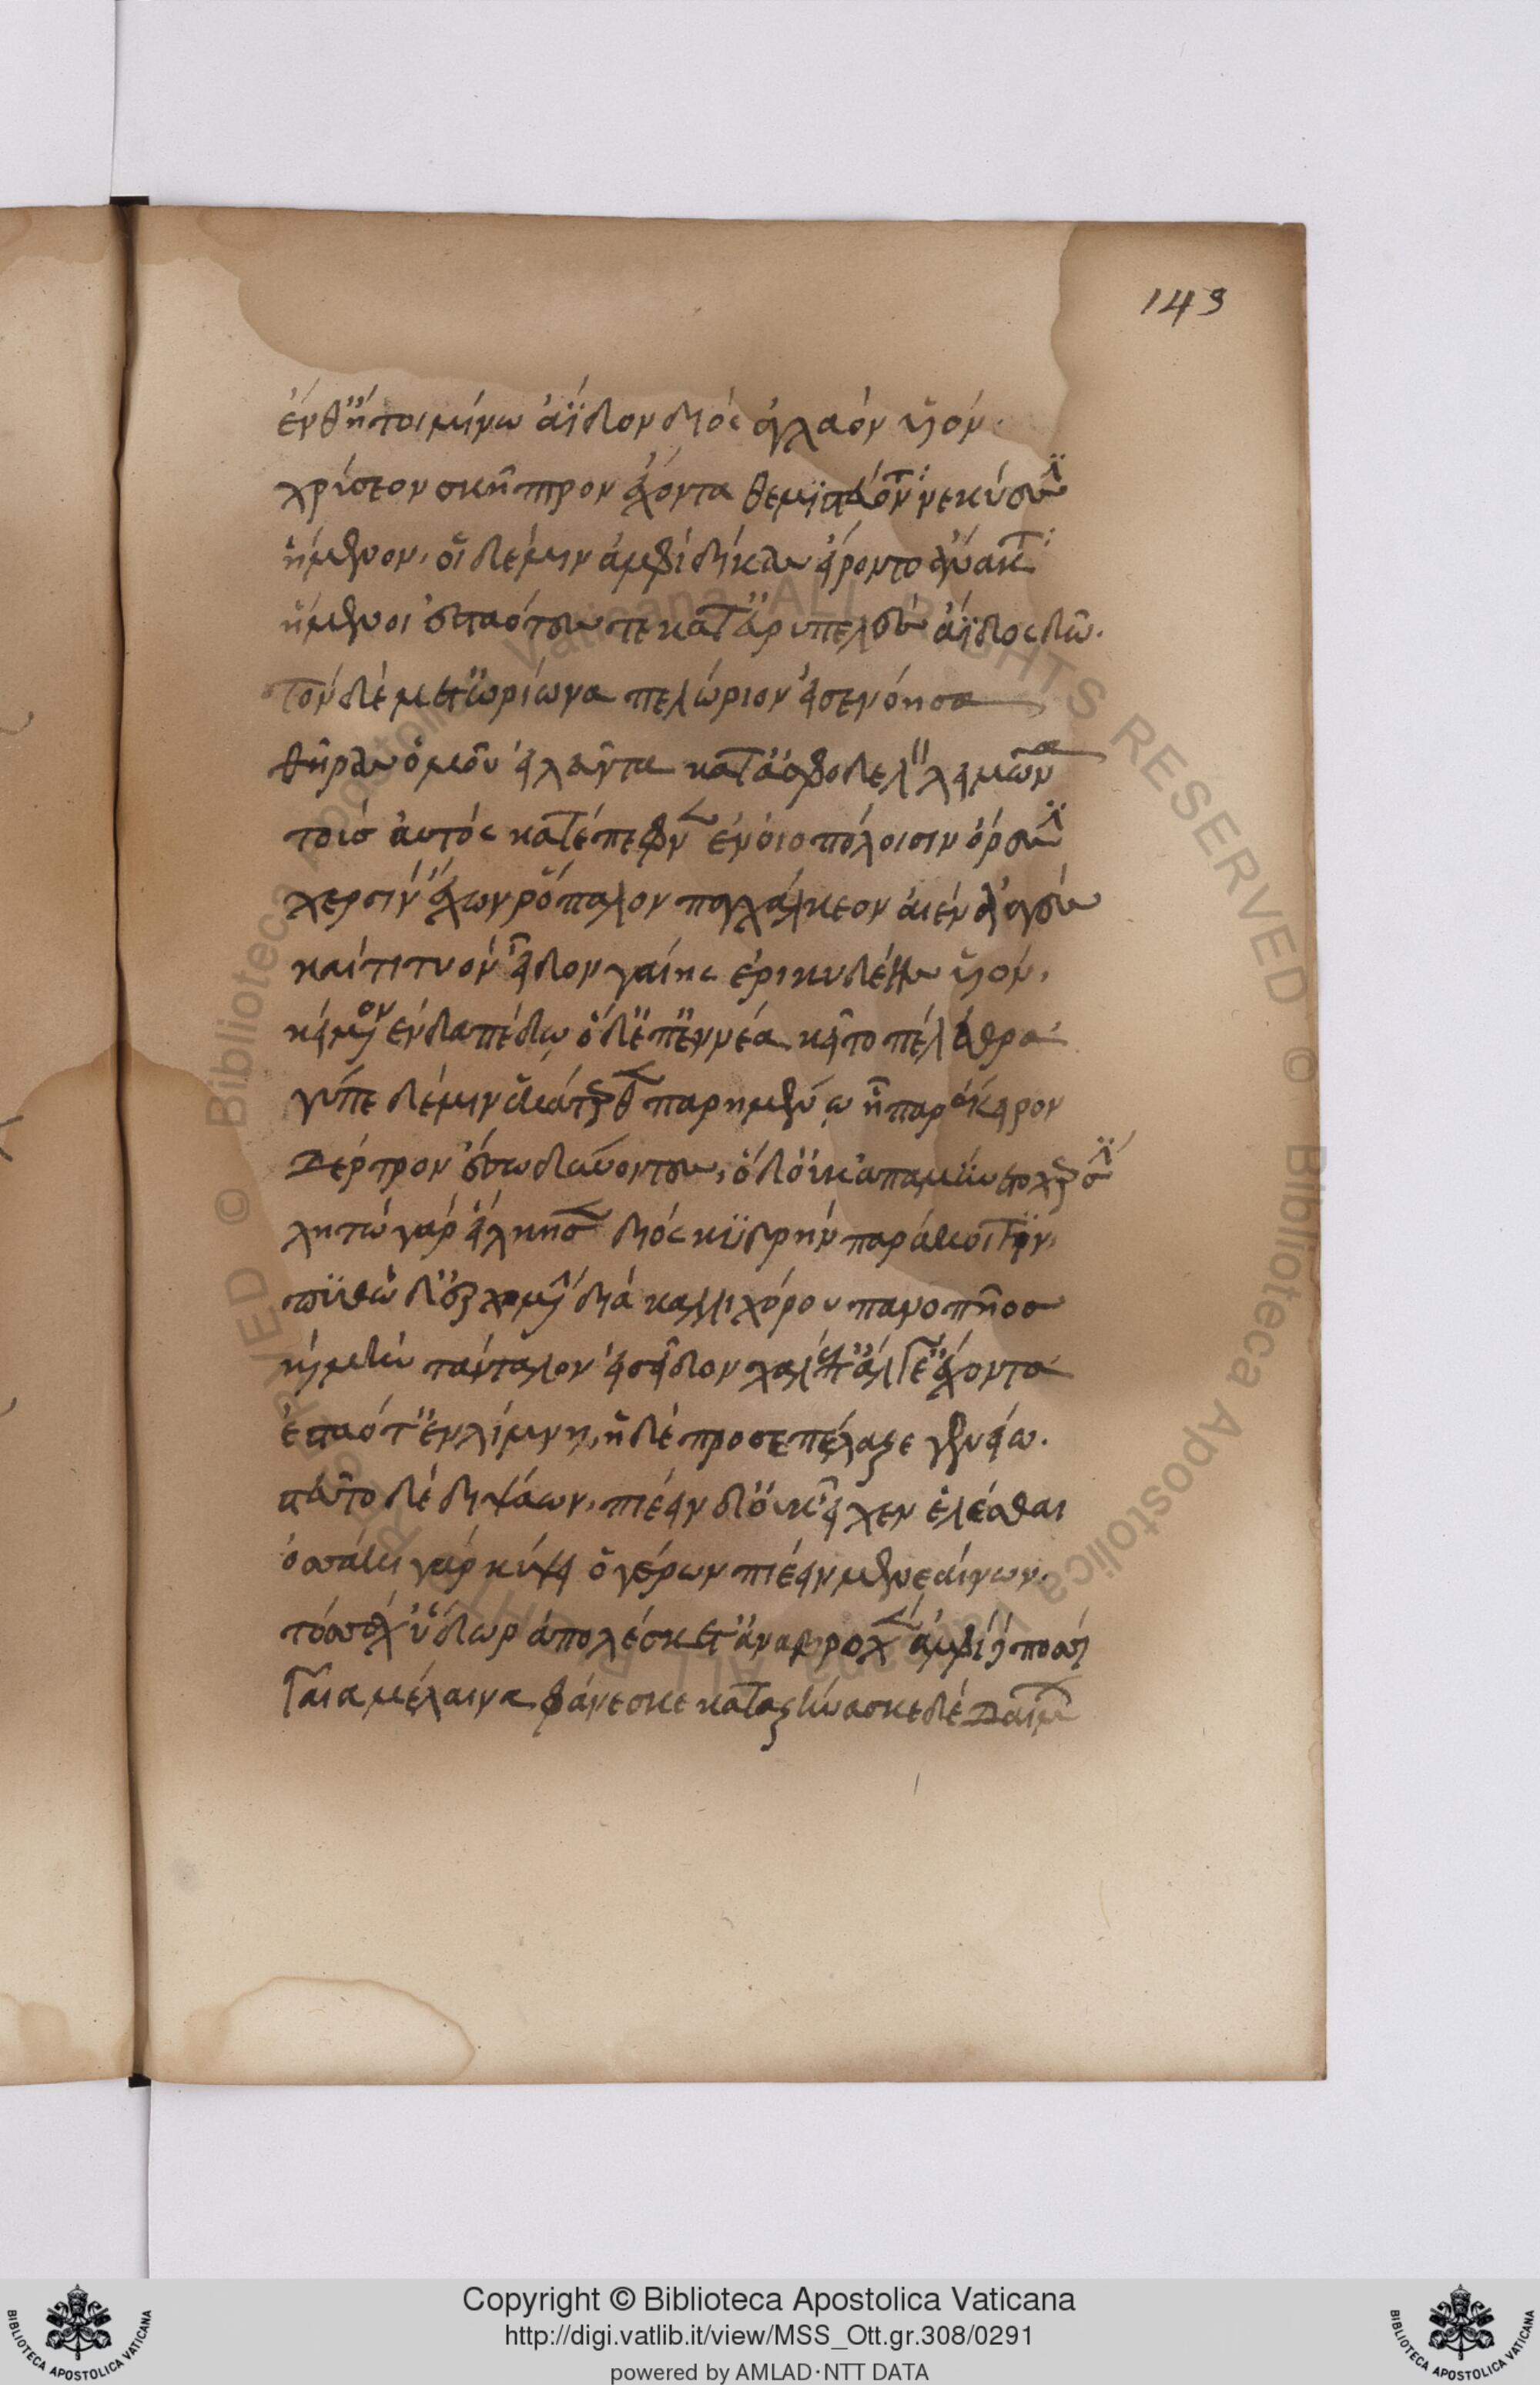 143
ἔνθ' ἤτοι μίνω ἄϊδον διός ἀγλαόν ὑϊόν·
χρύσεον σκῆπτρον ἔχοντα θεμιστεύοντα νεκύσσιν
ἥμενον· οἵ δέ μιν ἀμφί δίκας εἴροντο ἄνακτα
ἥμενοι ἑσταότες τε κατ' ἀρυπελές ἄϊδος δῶ.
τόν δέ μετ' ὠρίωνα πελώριον εἰσενόησα
θῆρας ὁμοῦ εἰλεῦντα κατ' ἀσφοδελόν λειμῶνα
τούς αὐτός κατέπεφνεν ἐν οἰοπόλοισιν ὄρεσσιν
χερσίν ἔχων ῥόπαλον παγχάλκεον αἰέν ἀαγές
καί τιτυόν εἶδον γαίης ἐρικυδέος ὑϊόν·
κείμενον ἐν δαπέδω, ὁ δ' ἐπ' ἐννέα κεῖτο πέλεθρα
γύπε δέ μιν ἑκάτερθεν παρημένω ἧπαρ ἔκειρον
δέρτρον ἔσω δύνοντες· ὁ δ' οὐκ ἀπαμύνετο χερσί
λητώ γάρ εἵλκησε διός κυδρήν παράκοιτιν·
πυθώ δ' ἐρχομένην διά καλλιχόρου πανοπῆος
καί μήν τάνταλον εἰσεῖδον χαλέπ' ἄλγε' ἔχοντα
ἑσταότ' ἐν λίμνη, ἡ δέ προσεπέλαζε γενείω.
στεῦτο δέ διψάων· πιέειν δ' οὐκ εἶχεν ἑλέσθαι
ὁσσάκι γάρ κύψει ὁ γέρων πιέειν μενεαίνων·
τοσσάχ' ὕδωρ ἀπολέσκετ' ἀναβροχέν ἀμφί δέ ποσσί
γαῖα μέλαινα φάνεσκε καταζήνασκε δέ δαίμων
Copyright © Biblioteca Apostolica Vaticana
http://digi.vatlib.it/view/MSS_Ott.gr.308/0291
powered by AMLAD·NTT DATA